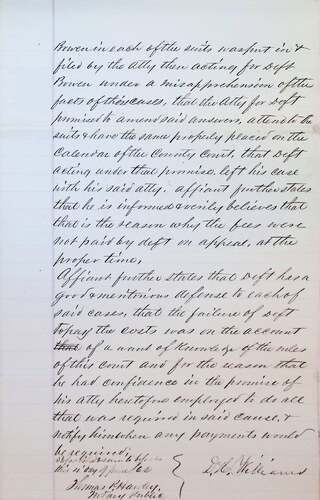 Bowen in each of the suits was put in &
filed by the Atty then acting for Deft
Bowen under a misapprehension of the
facts of those cases, that the Atty for Deft
promised to amend said answers, attend to the
suits & have the same properly placed on the
Calendar of the County Court, that Deft
acting under that promise left his case
with his said atty. affiant further states
that he is informed & verily believes that
that is the reason why the fees were
not paid by deft on appeal, at the
proper time,
Affiant further states that Deft has a
good & meritorious defense to each of
said cases, that the failure of Deft
to pay the costs was on the account
that of a want of Knowledge of the rules
of this court and for the reason that
he had confidence in the promise of
his Atty heretofore employed to do all
that was required in said cause, &
notify him when any payments would
be required,
this 11 day of
D. C. Williams
Thomas P. Hawley,
Notary Public